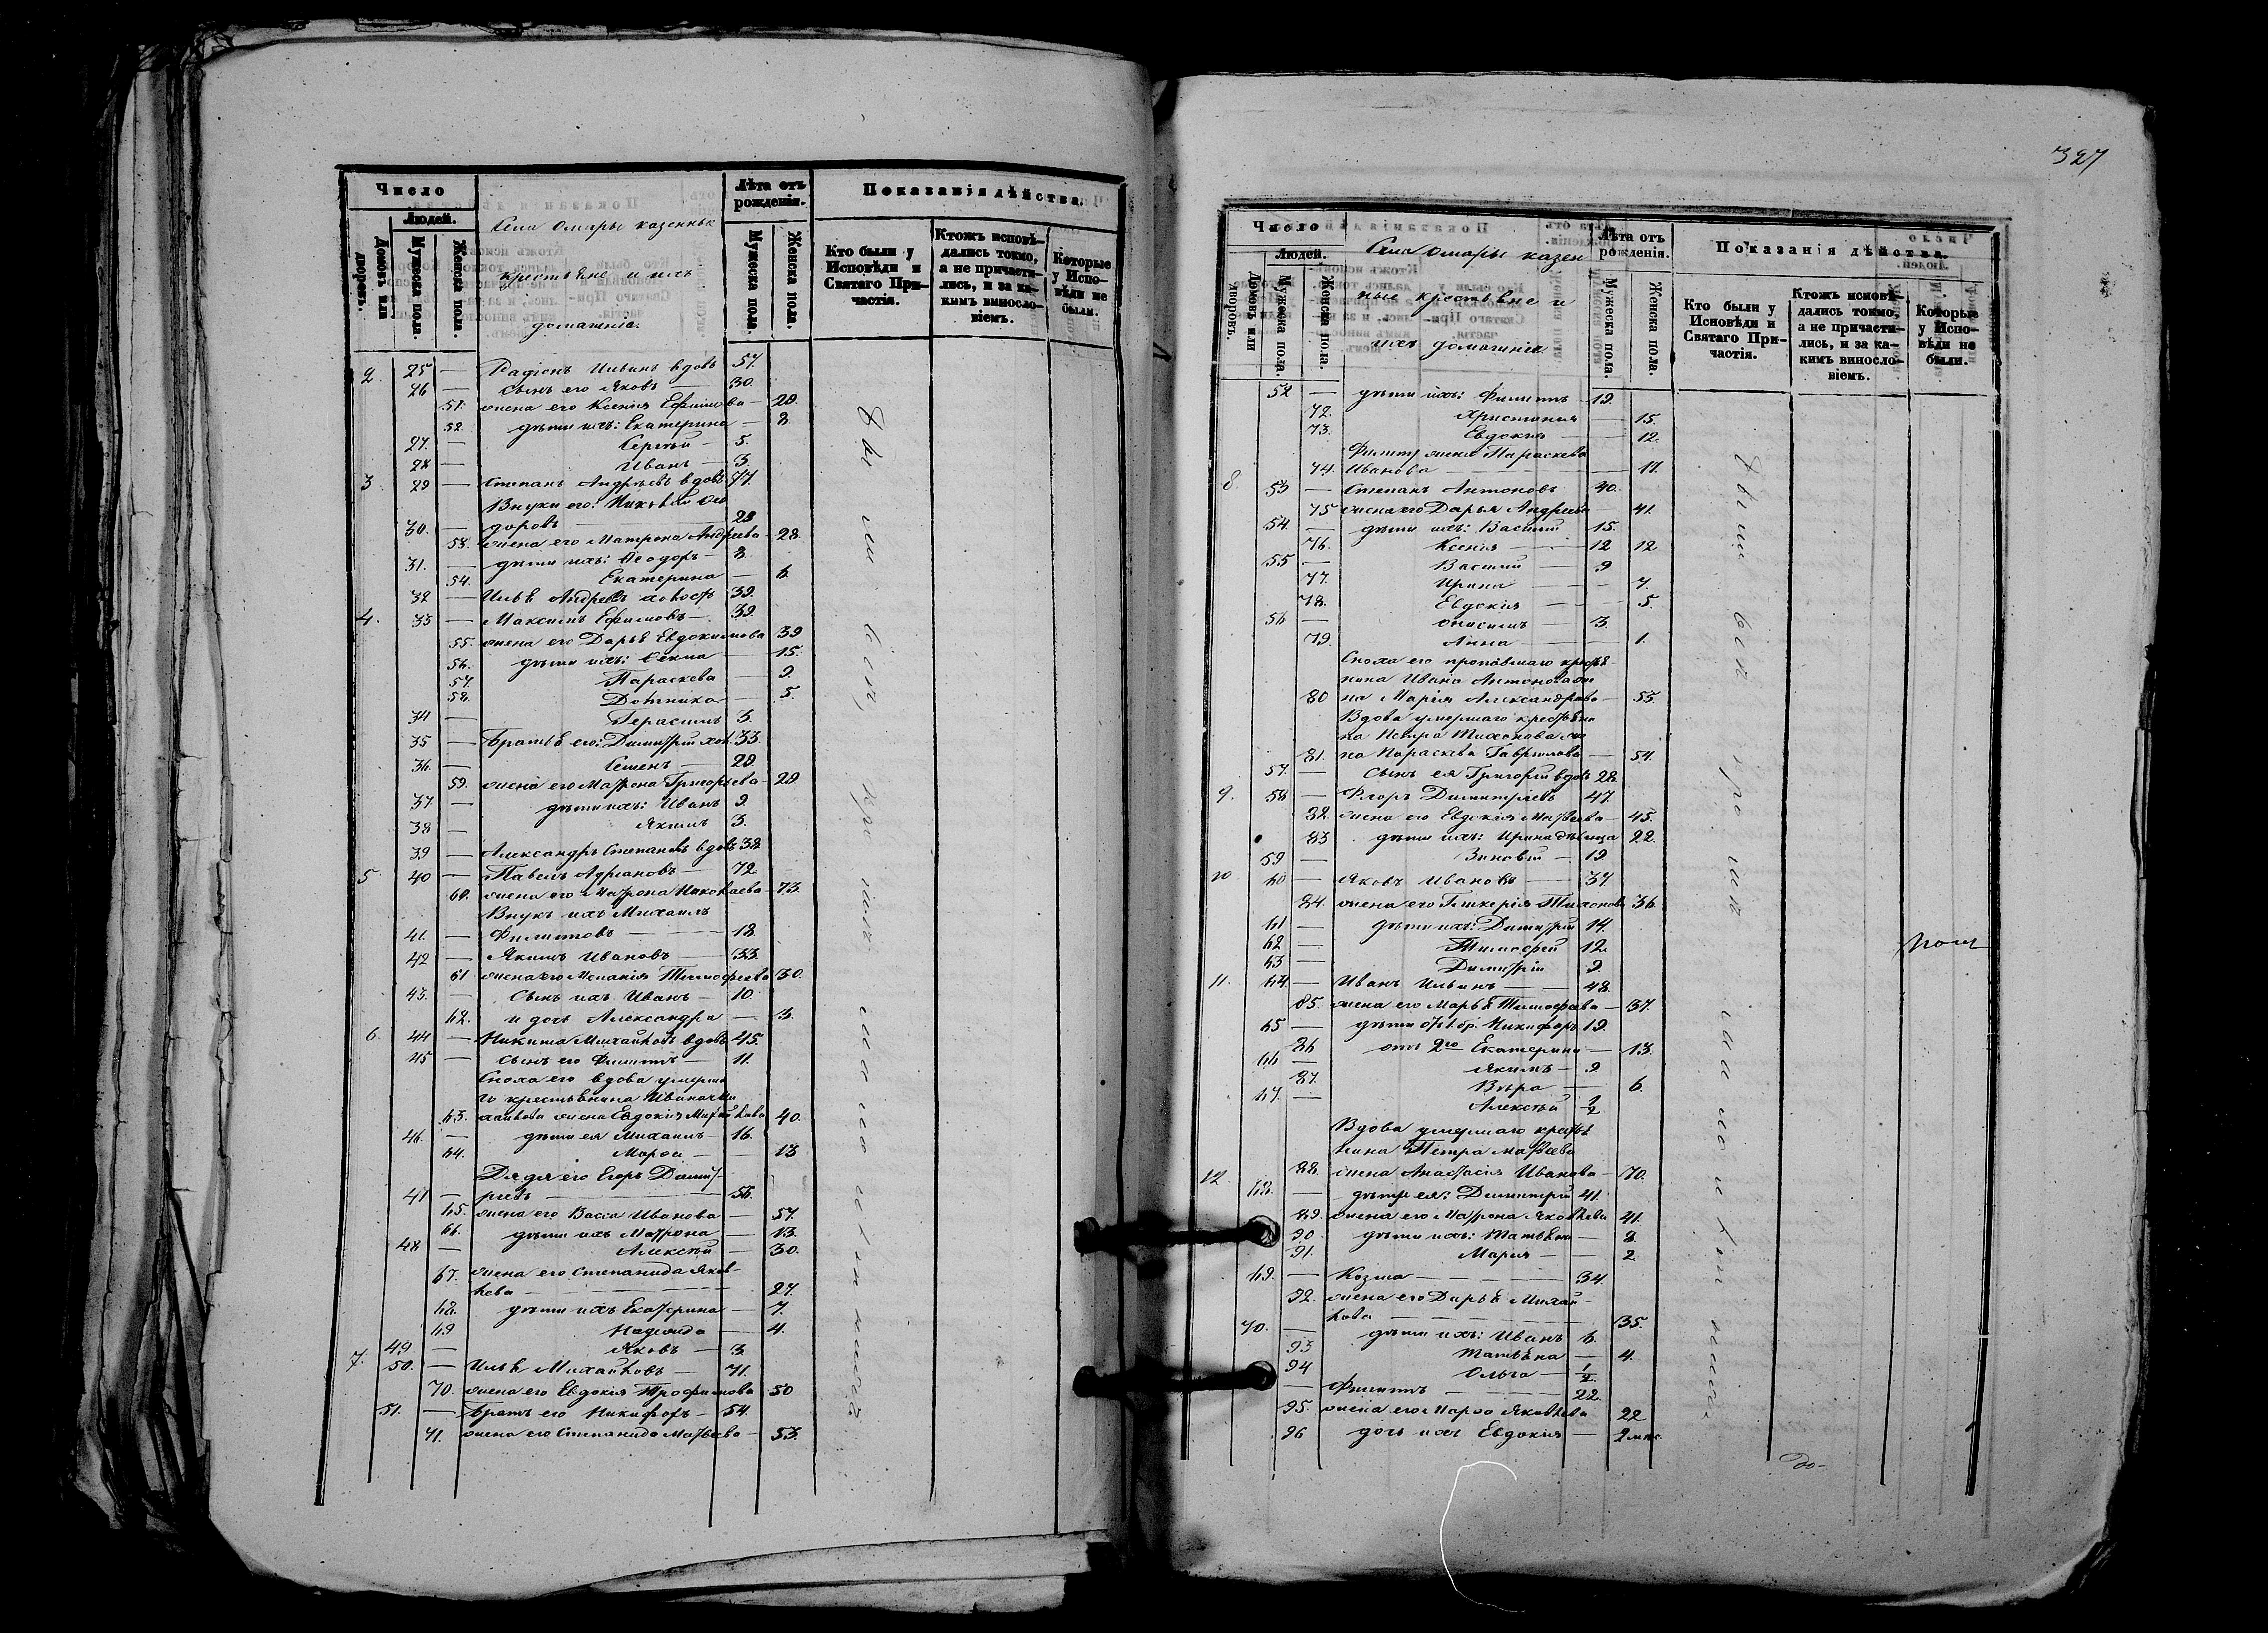 Число
Людей.
Домовъ или дворовъ.
Мужеска пола.
Женска пола.
Села Омары казенные
крестьяне и ихъ
домашніе.
Лѣта отъ рожденія.
Мужеска пола.
Женска пола.
Показанія дѣйства.
Кто были у Исповѣди и Святаго Причастія.
Ктожъ исповѣдались токмо, а не причастились, и за какимъ винословіемъ.
Которые у Исповѣди не были.
2. 25 — Радіонъ Ильинъ вдовъ 57.
26 — Сынъ его Яковъ — 30.
51. жена его Ксенія Ефимова — 29.
52. дѣти ихъ: Екатерина — 8
27. — Сергѣй — 5.
28 — Иванъ — 3.
3 29 — Степанъ Андреевъ вдовъ 77.
Внуки его: Николай Ѳео
30. — доровъ — 28
53. жена его Матрона Андреева 28.
31. — дѣти ихъ: Ѳеодоръ — 8.
54. Екатерина — 6.
32 — Илья Андреевъ холостъ 39.
4. 33 — Максимъ Ефимовъ — 39.
55. жена его Дарья Евдокимова 39
56. дѣти ихъ: Ѳекла — 15.
57. Параскева — 9.
58. Домника — 5.
34 — Герасимъ 3.
35 — Братья его: Димитрій хол. 33.
36. — Семенъ — 29.
59. жена его Матрона Григорьева — 29
37 — дѣти ихъ: Иванъ 9.
38 — Якимъ 3.
39 — Александръ Степановъ вдовъ 38
5 40 — Павелъ Адріановъ — 72.
60. жена его Матрона Николаева — 73.
Внукъ ихъ Михаилъ
41. — Филиповъ — 18.
42 — Якимъ Ивановъ — 33.
61 жена его Меланія Тимофеева 30.
43. — Сынъ ихъ Иванъ — 10.
62. и дочь Александра — 3.
6 44 — Никита Михайловъ вдовъ 45.
45 — Сынъ его Филиппъ — 11.
Сноха его вдова умерша
го крестьянина Ивана Ми
63. хайлова жена Евдокия Михайлова 40.
46. — дѣти ея Михаилъ — 16.
64. Марѳа — 13
Дядя его Егоръ Димит-
47 — ріевъ — 56.
65. жена его Васса Иванова — 57.
66. дѣти ихъ Матрона — 13.
48 — Алексѣй — 30.
67. жена его Степанида Яков-
лева — 27.
68. дѣти ихъ Екатерина — 7.
69 Надежда — 4.
49 — Яковъ — 3
7. 50. — Илья Михайловъ — 71.
70. жена его Евдокія Трофимова 50
51. — Братъ его Никифоръ — 54.
71. жена его Степанида Матвеева — 53.
327
Число
Людей.
Домовъ или дворовъ.
Мужеска пола.
Женска пола.
Села Омары казен
ные крестьяне и
ихъ домашніе.
Лѣта отъ рожденія.
Мужеска пола.
Женска пола.
Показанія дѣйства.
Кто были у Исповѣди и Святаго Причастія.
Ктожъ исповѣдались токмо, а не причастились, и за какимъ винословіемъ.
Которые у Исповѣди не были.
52 — дѣти ихъ: Филиппъ — 19.
72. Христинія — 15.
73. Евдокія — 12.
Филиппа жена Параскева
74. Иванова — 17.
8. 53 — Степанъ Антоновъ 40.
75 жена его Дарья Андреева — 41.
54. — дѣти ихъ: Василій — 15.
76. Ксенія — 12 12
55 — Василій — 9
77. Ирина — 7.
78. Евдокія — 5.
56 — Онисимъ — 3.
79. Анна — 1.
Сноха его пропавшаго кресть
нина Ивана Антонова же
80 на Марія Александрова — 55.
Вдова умершаго крестьяни
на Петра Тихонова же
81. на Параскева Гаврилова — 54.
57. — Сынъ ея Григорій вдовъ 28.
9. 58 — Флоръ Димитріевъ — 47.
82. жена его Евдокія Матвеева — 45.
83 дѣти ихъ: Ирина дѣвица 22.
59 — Зиновій — 19.
10 60 — Яковъ Ивановъ — 37.
84. жена его Гликерія Тихонова 36.
61 — дѣти ихъ: Димитрій 14.
62 — Тимофей 12.
63 — Димитрій 9.
11. 64 — Иванъ Ильинъ — 48.
85. жена его Марья Тимофеева — 37.
65 — дѣти отъ 1. бр. Никифоръ 19.
86 отъ 2го Екатерина — 13.
66 — Якимъ — 9
87. Вѣра — 6.
67. — Алексѣй 1/2
Вдова умершаго кресть
нина Петра Матвеева
12. 88. жена Анастасія Иванова — 70.
68. — дѣти ея: Димитрій 41.
89. жена его Матрона Яковлева 41.
90. дѣти ихъ: Татьяна — 8.
91. Марія — 2
69. — Козма — 34.
92. жена его Дарья Михай-
лова — 35.
70. — дѣти ихъ: Иванъ 6.
93 Татьяна — 4.
94 Ольга — 1/2
— Филиппъ — 22.
95. жена его Марѳа Яковлева 22
96 дочь ихъ Евдокія — 2 мѣс.